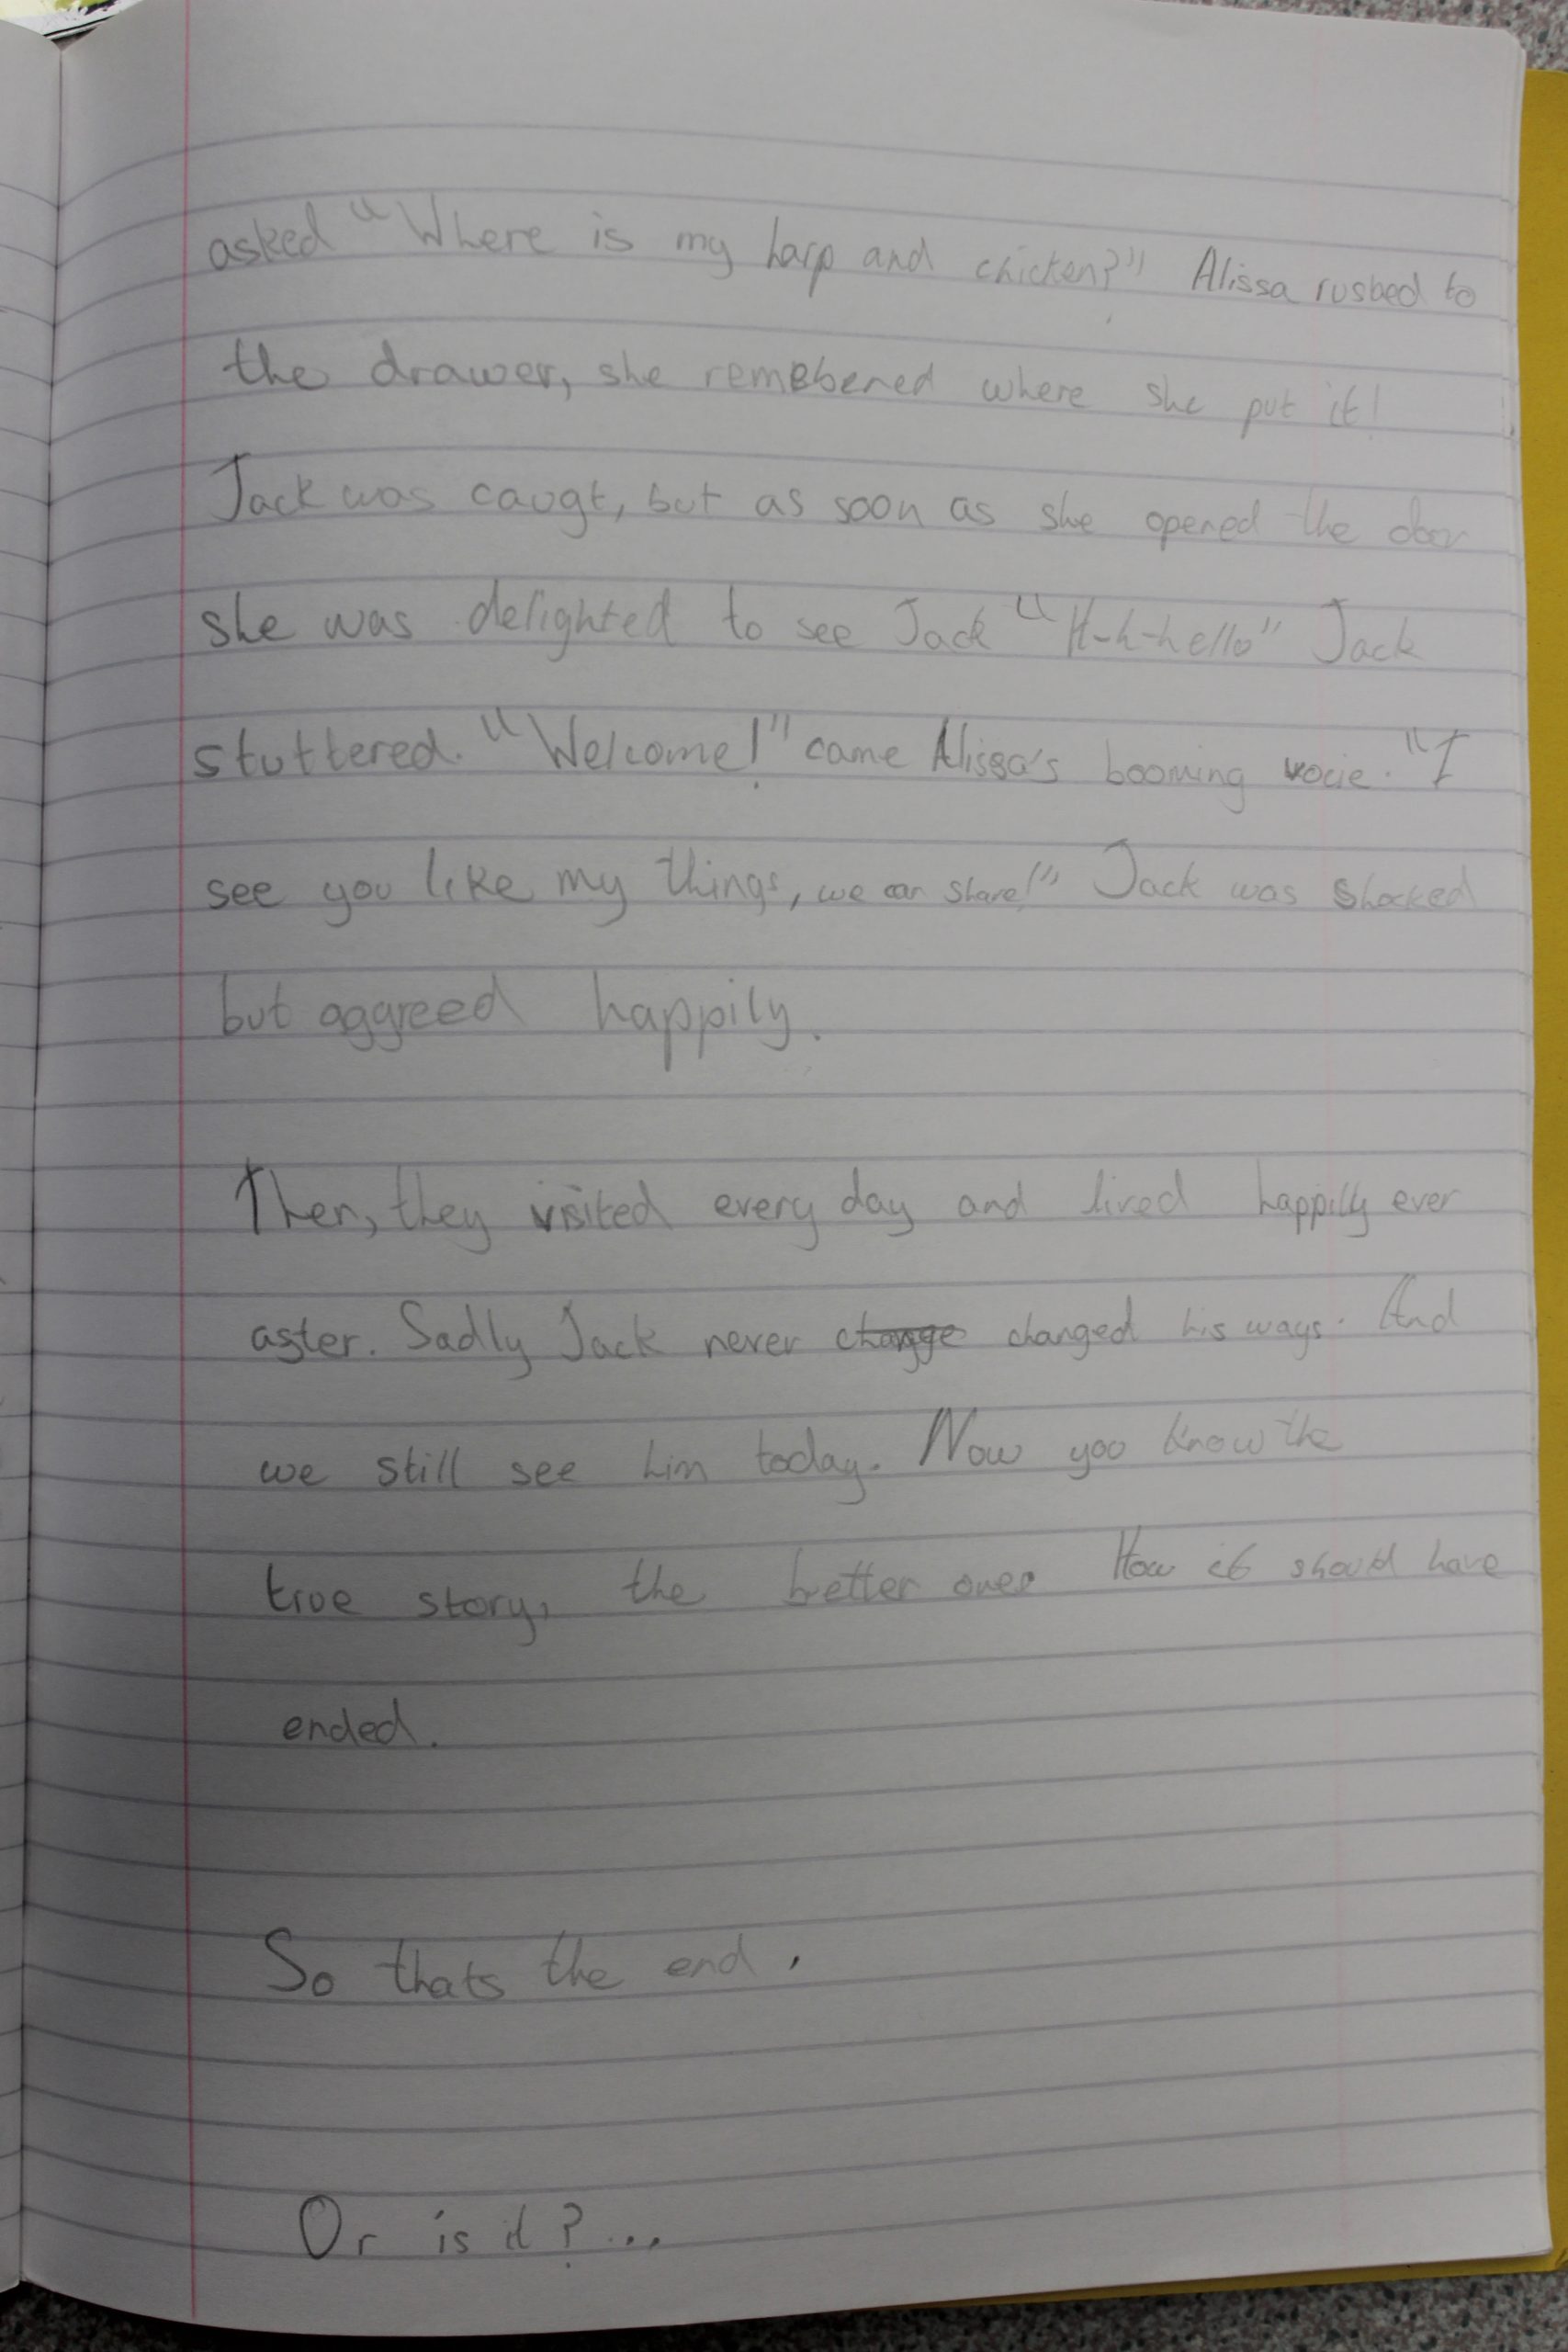 asked "Where is my harp and chicken?" Alissa rushed to
the drawer, she remebbered where she put it!
Jack was caugt, but as soon as she opened the door
she was delighted to see Jack "H-h-hello" Jack
stuttered. "Welcome!" came Alissa's booming vocie. "I
see you like my things, we can share!" Jack was shocked
but aggreed happily.
Then, they visited every day and lived happily ever
after. Sadly Jack never change changed his ways. And
we still see him today. Now you know the
true story, the better one. How it should have
ended.
So thats the end.
Or is it?...